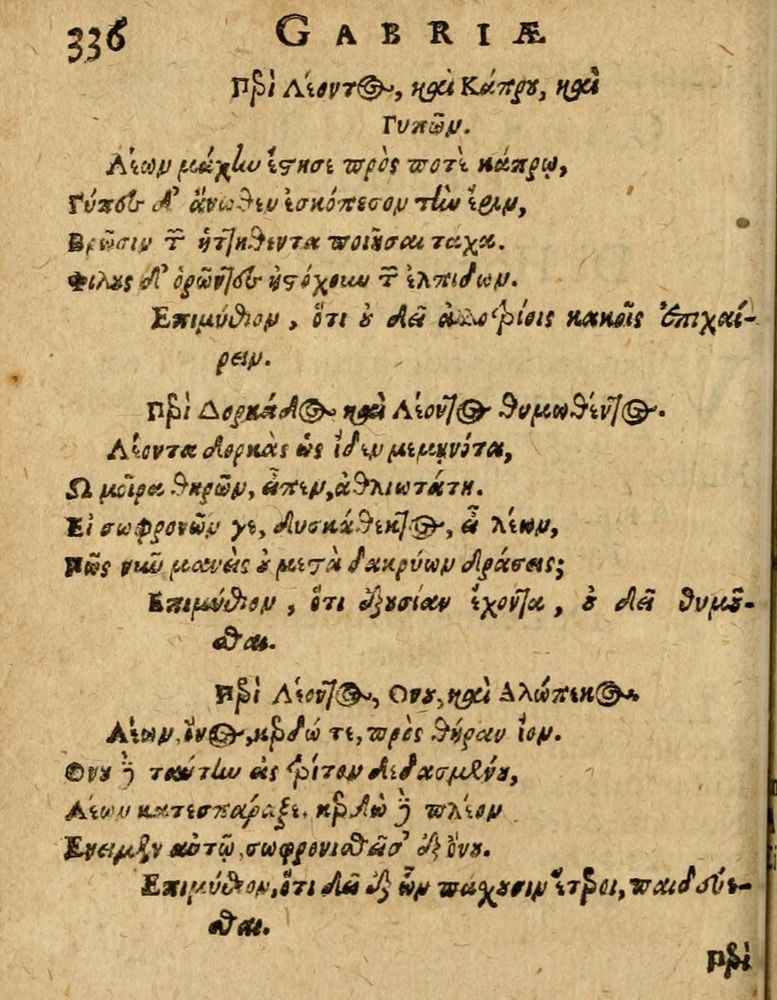 336 GABRIÆ
Περὶ Λέοντος, καὶ Κάπρου, καὶ
Γυπῶν.
Λέων μάχην ἔστησε πρὸς ποτὲ κάπρῳ,
Γύπες δ' ἄνωθεν ἐσκόπεσον τὴν ἔριν,
Βρῶσιν τὸν ἡττηθέντα ποιῆσαι ταχα.
Φίλους δ' ὁρῶντες ἠστόχουν τῶν ἐλπίδων.
Επιμύθιον, ὅτι οὐ δεῖ ἀλλοτρίοις κακοῖς ἐπιχαί-
ρειν.
Περὶ Δορκάδος καὶ Λέοντος θυμωθέντος.
Λέοντα δορκὰς ὡς ἶδεν μεμηνότα,
Ω μοῖρα θηρῶν, εἶπεν, ἀθλιωτάτη.
Εἰ σωφρονῶν γε, δυσκάθεκτος, εἶ λέων,
Πῶς νοῦν μανεὶς οὐ μετὰ δακρύων δράσεις;
Επιμύθιον, ὅτι ἐξουσίαν ἔχοντα, οὐ δεῖ θυμοῦ-
σθαι.
Περὶ Λέοντος, Ονου, καὶ Αλώπεκος.
Λέων, ὄνος, κερδώ τε, πρὸς θήραν ἴον.
Ονου δὲ ταύτην εἰς τρίτον δεδασμένου,
Λέων κατεσπάραξε. κερδὼ δὲ πλέον
Ενειμεν αὐτῷ, σωφρονισθεῖσ' ἐξ ὄνου.
Επιμύθιον, ὅτι δεῖ ἐξ ὧν πάσχουσιν ἕτεροι, παιδεύε-
σθαι.
Περὶ